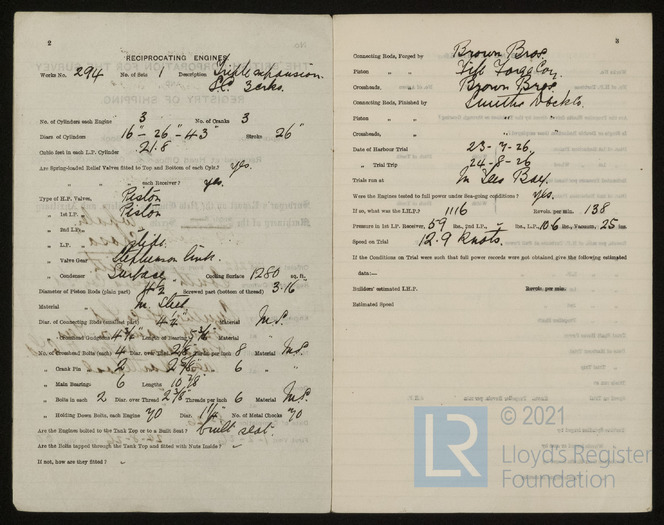 2
RECIPROCATING ENGINES
Works No. 294 No. of Sets 1 Description Triple expansion
S.C. 3 crks.
No. of Cylinders each Engine 3 No. of Cranks 3
Diars of Cylinders 16" - 26" - 43" Stroke 26"
Cubic feet in each L.P. Cylinder 21.8
Are Spring-loaded Relief Valves fitted to Top and Bottom of each Cylr.? yes.
" " each Receiver? yes.
Type of H.P. Valves, Piston
" 1st I.P. " Piston
" 2nd I.P. "
" L.P. " slide.
" Valve Gear Stephenson link.
" Condenser Surface Cooling Surface 1280 sq. ft.
Diameter of Piston Rods (plain part) 4½ Screwed part (bottom of thread) 3.16"
Material M. Steel
Diar. of Connecting Rods (smallest part) Material M.S.
" Crosshead Gudgeons Length of Bearing Material "
No. of Crosshead Bolts (each) 4 Diar. over Thrd. Thrds. per inch 8 Material M.S.
" Crank Pin " 2 " " 6 "
" Main Bearings 6 Lengths 10 ⅞"
" Bolts in each 2 Diar. over Thread Threads per inch 6 Material M.S.
" Holding Down Bolts, each Engine 70 Diar. No. of Metal Chocks 70
Are the Engines bolted to the Tank Top or to a Built Seat? built seat.
Are the Bolts tapped through the Tank Top and fitted with Nuts Inside? -
If not, how are they fitted? -
3
Connecting Rods, Forged by Brown Bros.
Piston " " Fife Forge Coy.
Crossheads, " Brown Bros.
Connecting Rods, Finished by Smiths Docks.
Piston " " "
Crossheads, " " "
Date of Harbour Trial 23-7-26.
" Trial Trip 24-8-26
Trials run at In Tees Bay.
Were the Engines tested to full power under Sea-going conditions? yes.
If so, what was the I.H.P.? 1116 Revols. per min. 138
Pressure in 1st I.P. Receiver, 59 lbs., 2nd I.P., lbs., L.P., 10.6 lbs., Vacuum, 25 ins.
Speed on Trial 12.9 knots.
If the Conditions on Trial were such that full power records were not obtained give the following estimated
data:—
Builders' estimated I.H.P. Revols. per min.
Estimated Speed
LR
© 2021
Lloyd's Register
Foundation